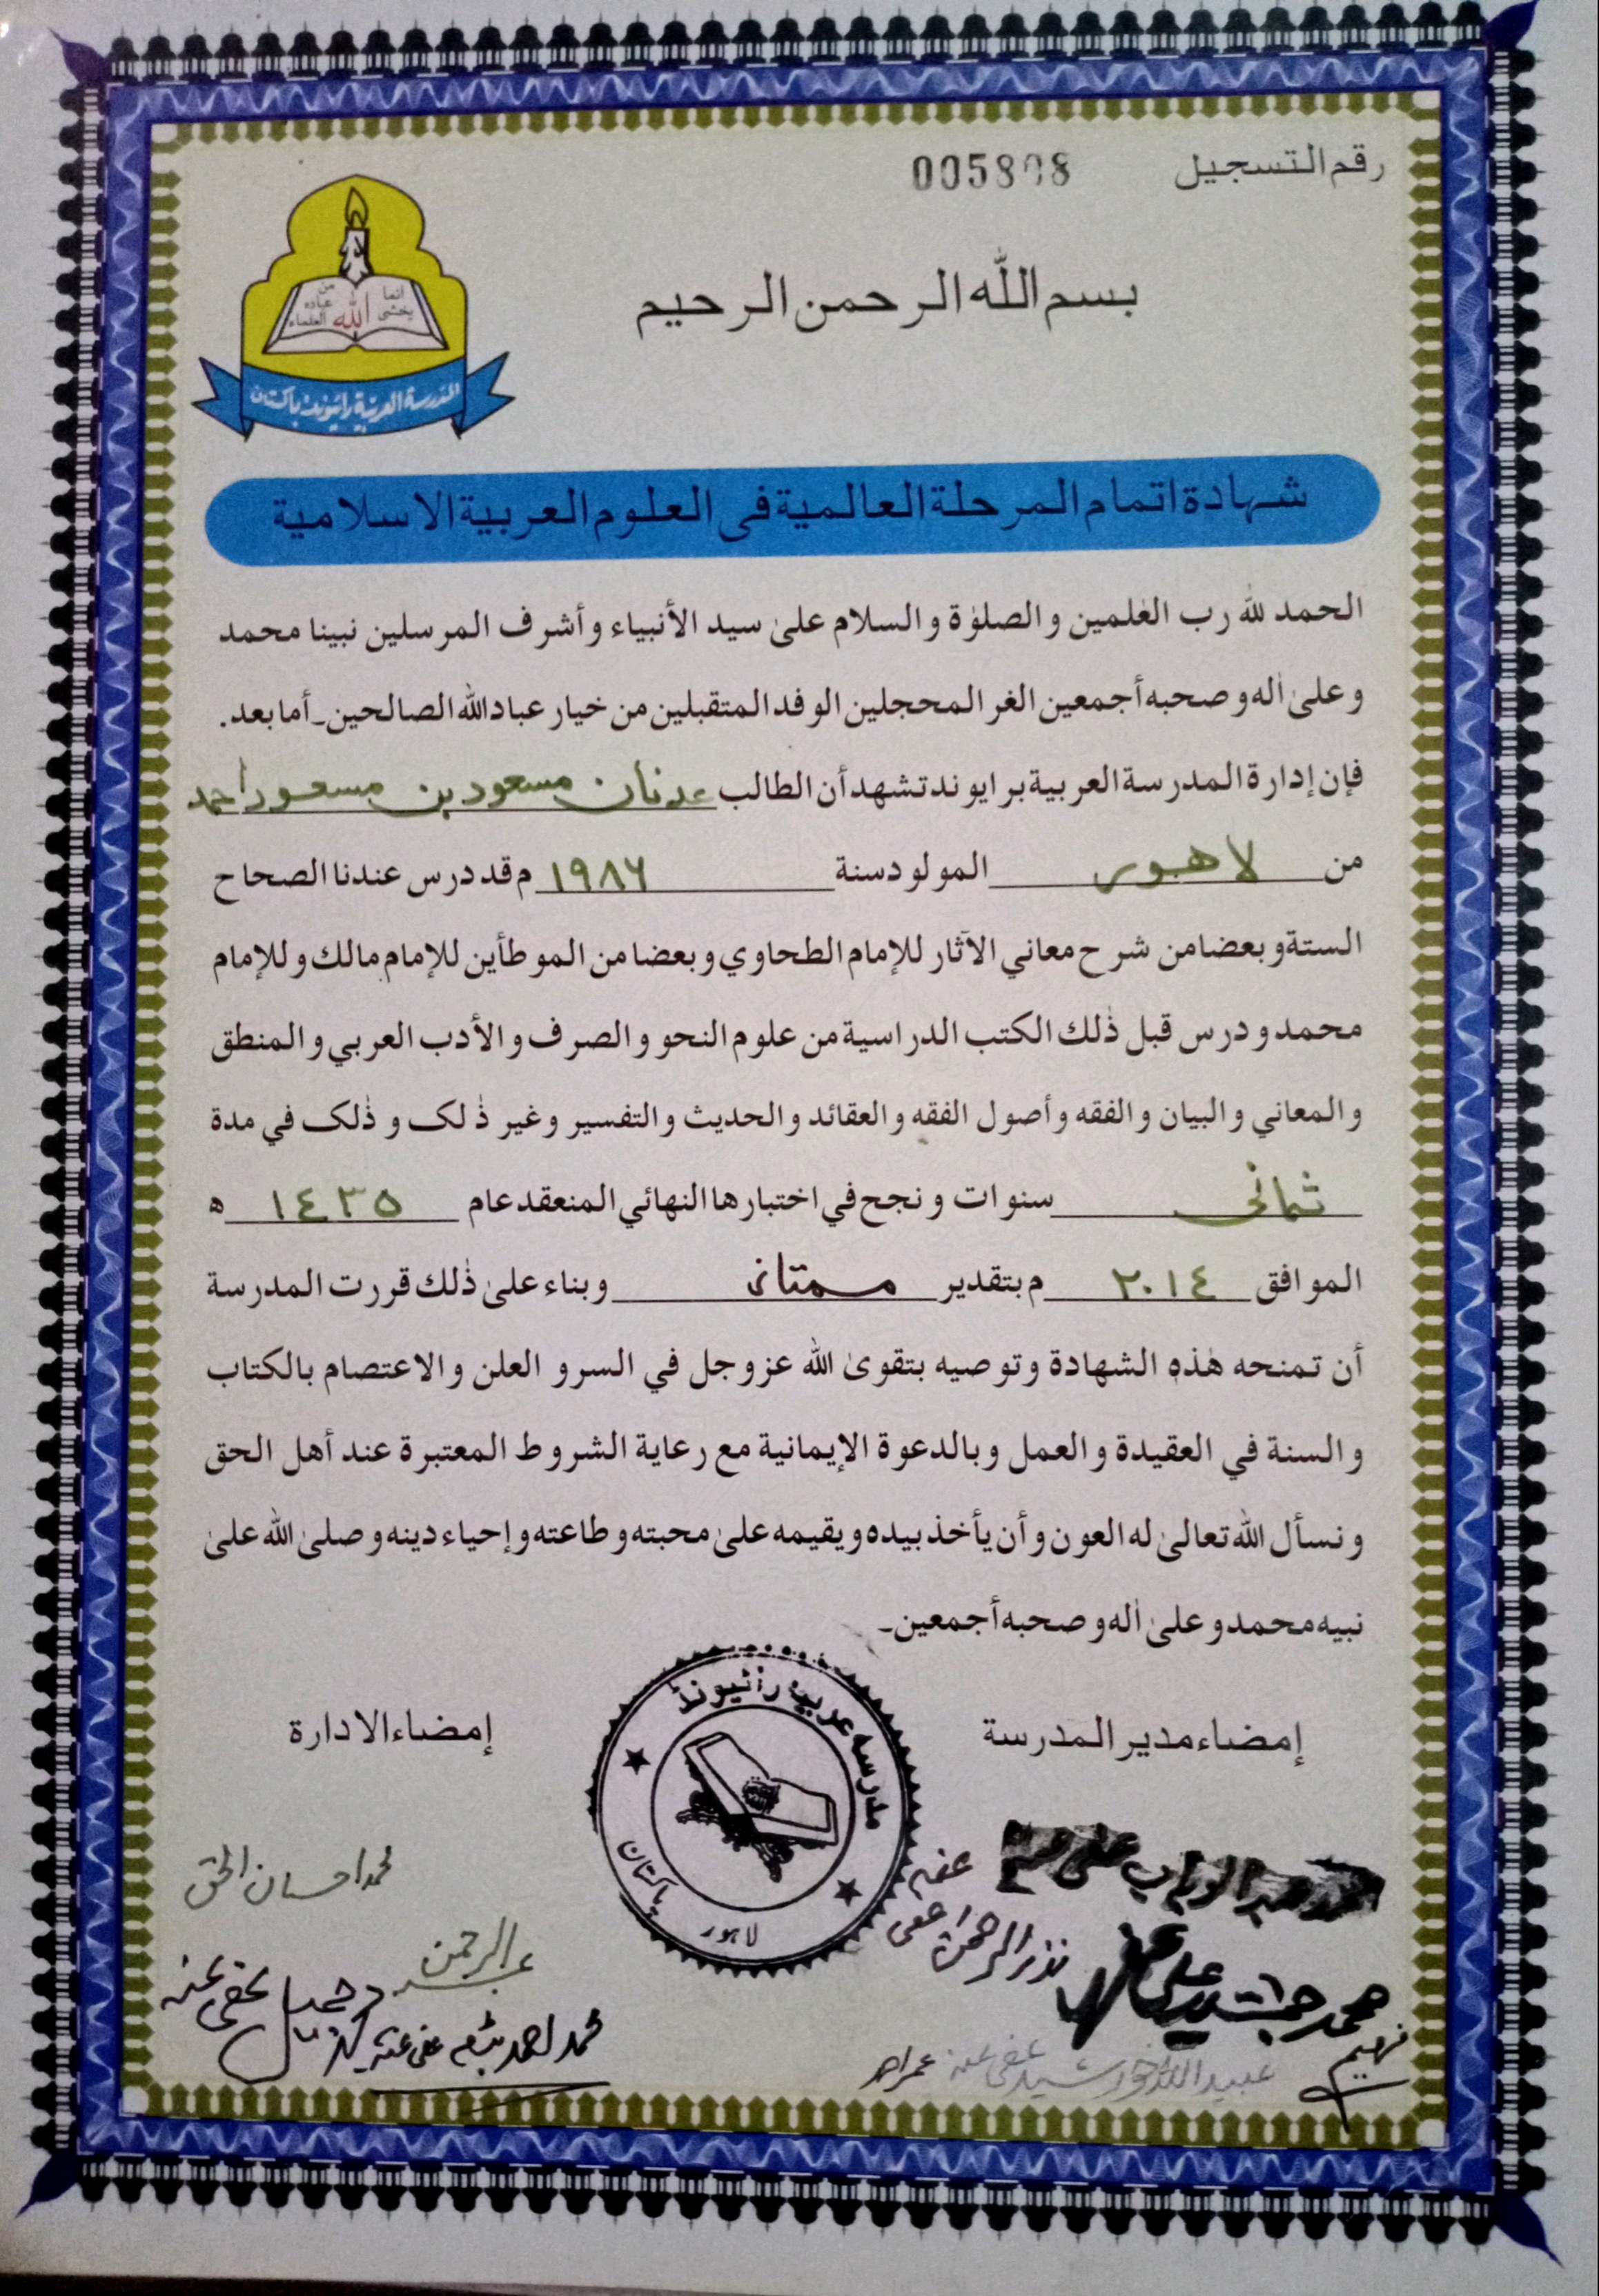 رقم التسجيل 005808
انما يخشى الله من عباده العلماء
المدرسة العربية رائيوند باكستان
بسم الله الرحمن الرحيم
شهادة اتمام المرحلة العالمية فى العلوم العربية الاسلامية
الحمد لله رب العٰلمين والصلوٰة والسلام علىٰ سيد الأنبياء وأشرف المرسلين نبينا محمد
وعلىٰ اٰله وصحبه أجمعين الغر المحجلين الوفد المتقبلين من خيار عباد الله الصالحين۔ أما بعد.
فإن إدارة المدرسة العربية برايوند تشهد أن الطالب عدنان مسعود بن مسعود احمد
من لاهور المولود سنة ١٩٨٦ م قد درس عندنا الصحاح
الستة وبعضا من شرح معاني الآثار للإمام الطحاوي وبعضا من الموطأين للإمام مالك وللإمام
محمد ودرس قبل ذٰلك الكتب الدراسية من علوم النحو والصرف والأدب العربي والمنطق
والمعاني والبيان والفقه وأصول الفقه والعقائد والحديث والتفسير وغير ذٰلک و ذٰلک في مدة
ثمانى سنوات ونجح في اختبارها النهائي المنعقد عام ١٤٣٥ ھ
الموافق ٢٠١٤ م بتقدير ممتاز وبناء علىٰ ذٰلك قررت المدرسة
أن تمنحه هٰذه الشهادة وتوصيه بتقوىٰ الله عزوجل في السر و العلن والاعتصام بالكتاب
والسنة في العقيدة والعمل وبالدعوة الإيمانية مع رعاية الشروط المعتبرة عند أهل الحق
ونسأل الله تعالىٰ له العون وأن يأخذ بيده ويقيمه علىٰ محبته وطاعته وإحياء دينه وصلىٰ الله علىٰ
نبيه محمد وعلىٰ اٰله وصحبه أجمعين۔
إمضاء مدير المدرسة
إمضاء الادارة
مدرسه عربيه رائيونڈ
لاهور پاکستان
عبد الوهاب عفى عنه
نذر الرحمن
محمد جمشيد على
فهيم
عبيد الله خورشيد عفى عنه
عمر احمد
محمد احسان الحق
عبد الرحمن
محمد جميل عفى عنه
محمد احمد